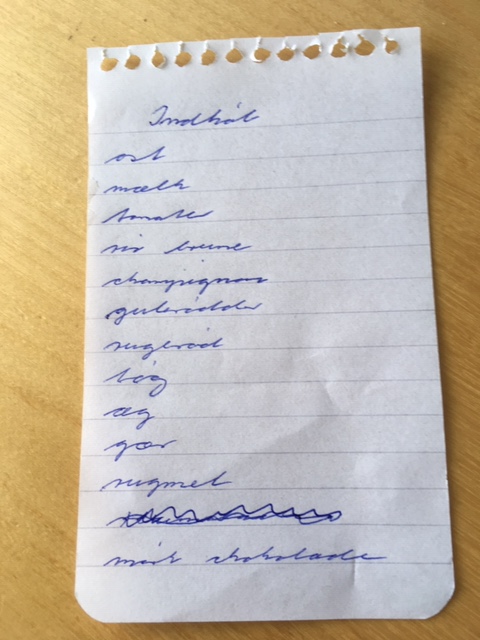 Indkøb
ost
mælk
tomater
ris brune
champignon
gulerødder
rugbrød
løg
æg
gær
rugmel
mørk chokolade